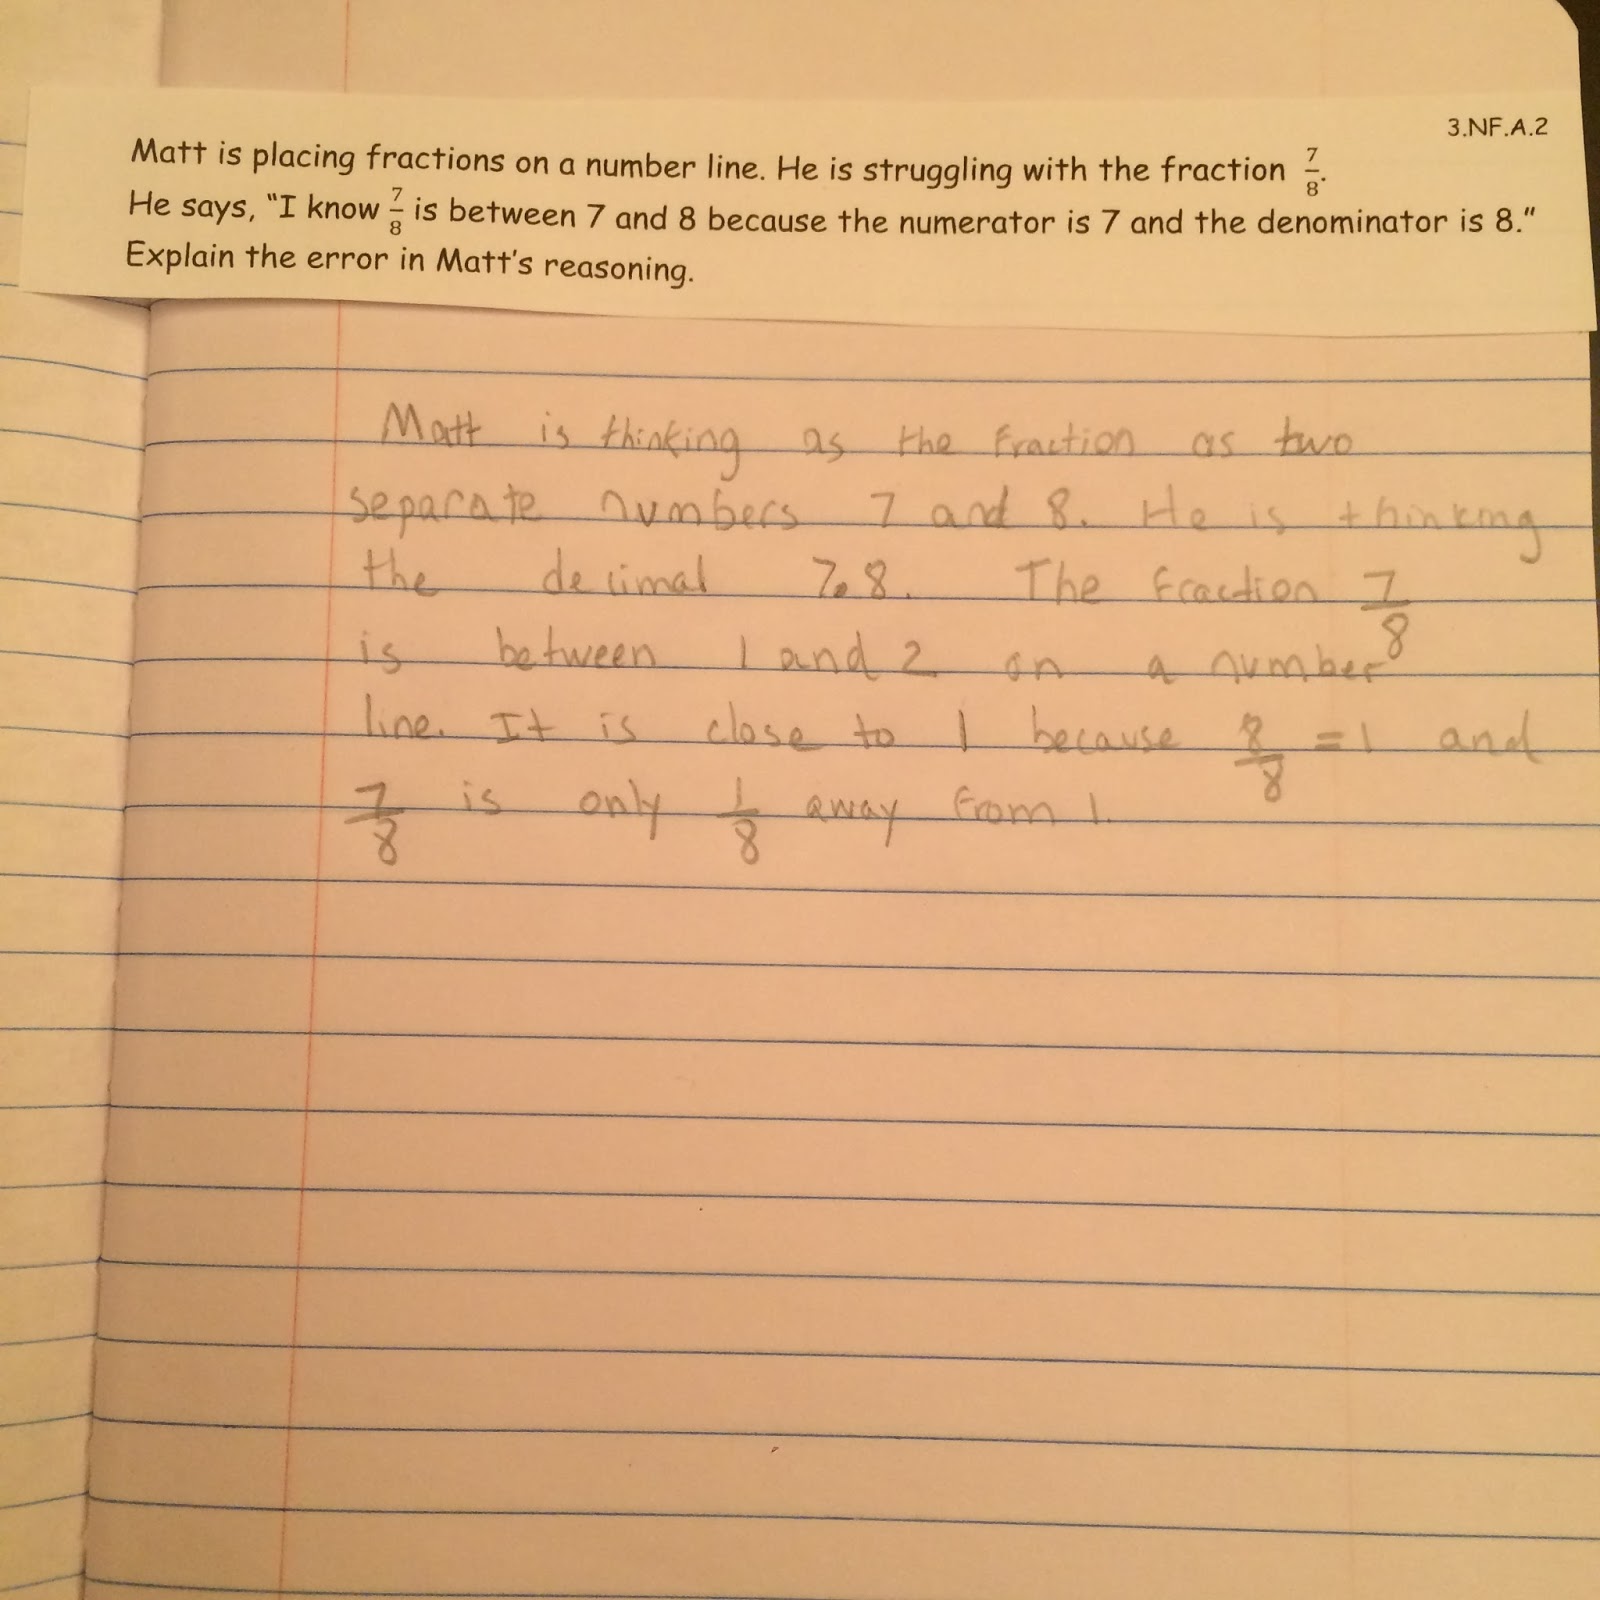 3.NF.A.2
Matt is placing fractions on a number line. He is struggling with the fraction 7/8.
He says, “I know 7/8 is between 7 and 8 because the numerator is 7 and the denominator is 8.”
Explain the error in Matt’s reasoning.
Matt is thinking as the fraction as two
separate numbers 7 and 8. He is thinking
the decimal 7.8. The fraction 7/8
is between 1 and 2 on a number
line. It is close to 1 because 8/8 = 1 and
7/8 is only 1/8 away from 1.